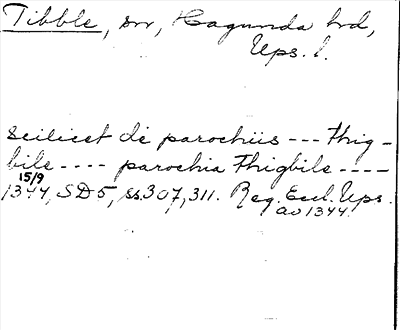 Tibble, sn, Hagunda hd,
Ups. l.
scilicet de parochiis --- Thig-
bile ---- parochia Thigbile ----
15/9
1344, SD5, ss. 307, 311. Reg. Eccl. Ups.
av 1344.